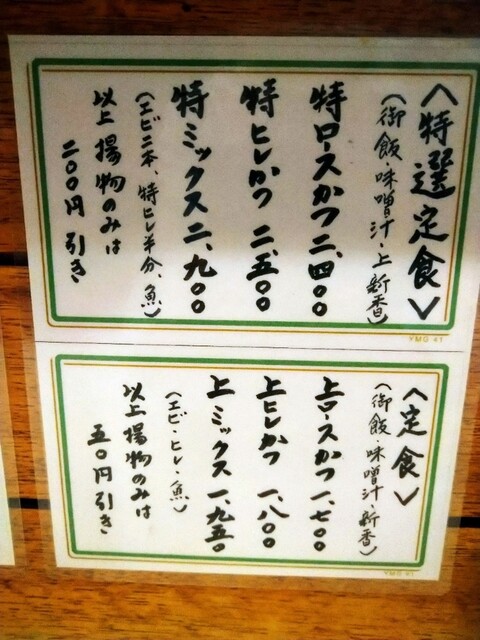 〈特選定食〉
（御飯・味噌汁・上新香）
特ロースかつ二、四〇〇
特ヒレかつ 二、五〇〇
特ミックス二、九〇〇
（エビ二本、特ヒレ半分、魚）
以上揚物のみは
二〇〇円引き
YMG 41
〈定食〉
（御飯・味噌汁・新香）
上ロースかつ一、七〇〇
上ヒレかつ 一、八〇〇
上ミックス一、九五〇
（エビ・ヒレ・魚）
以上揚物のみは
五〇円引き
YMG 41